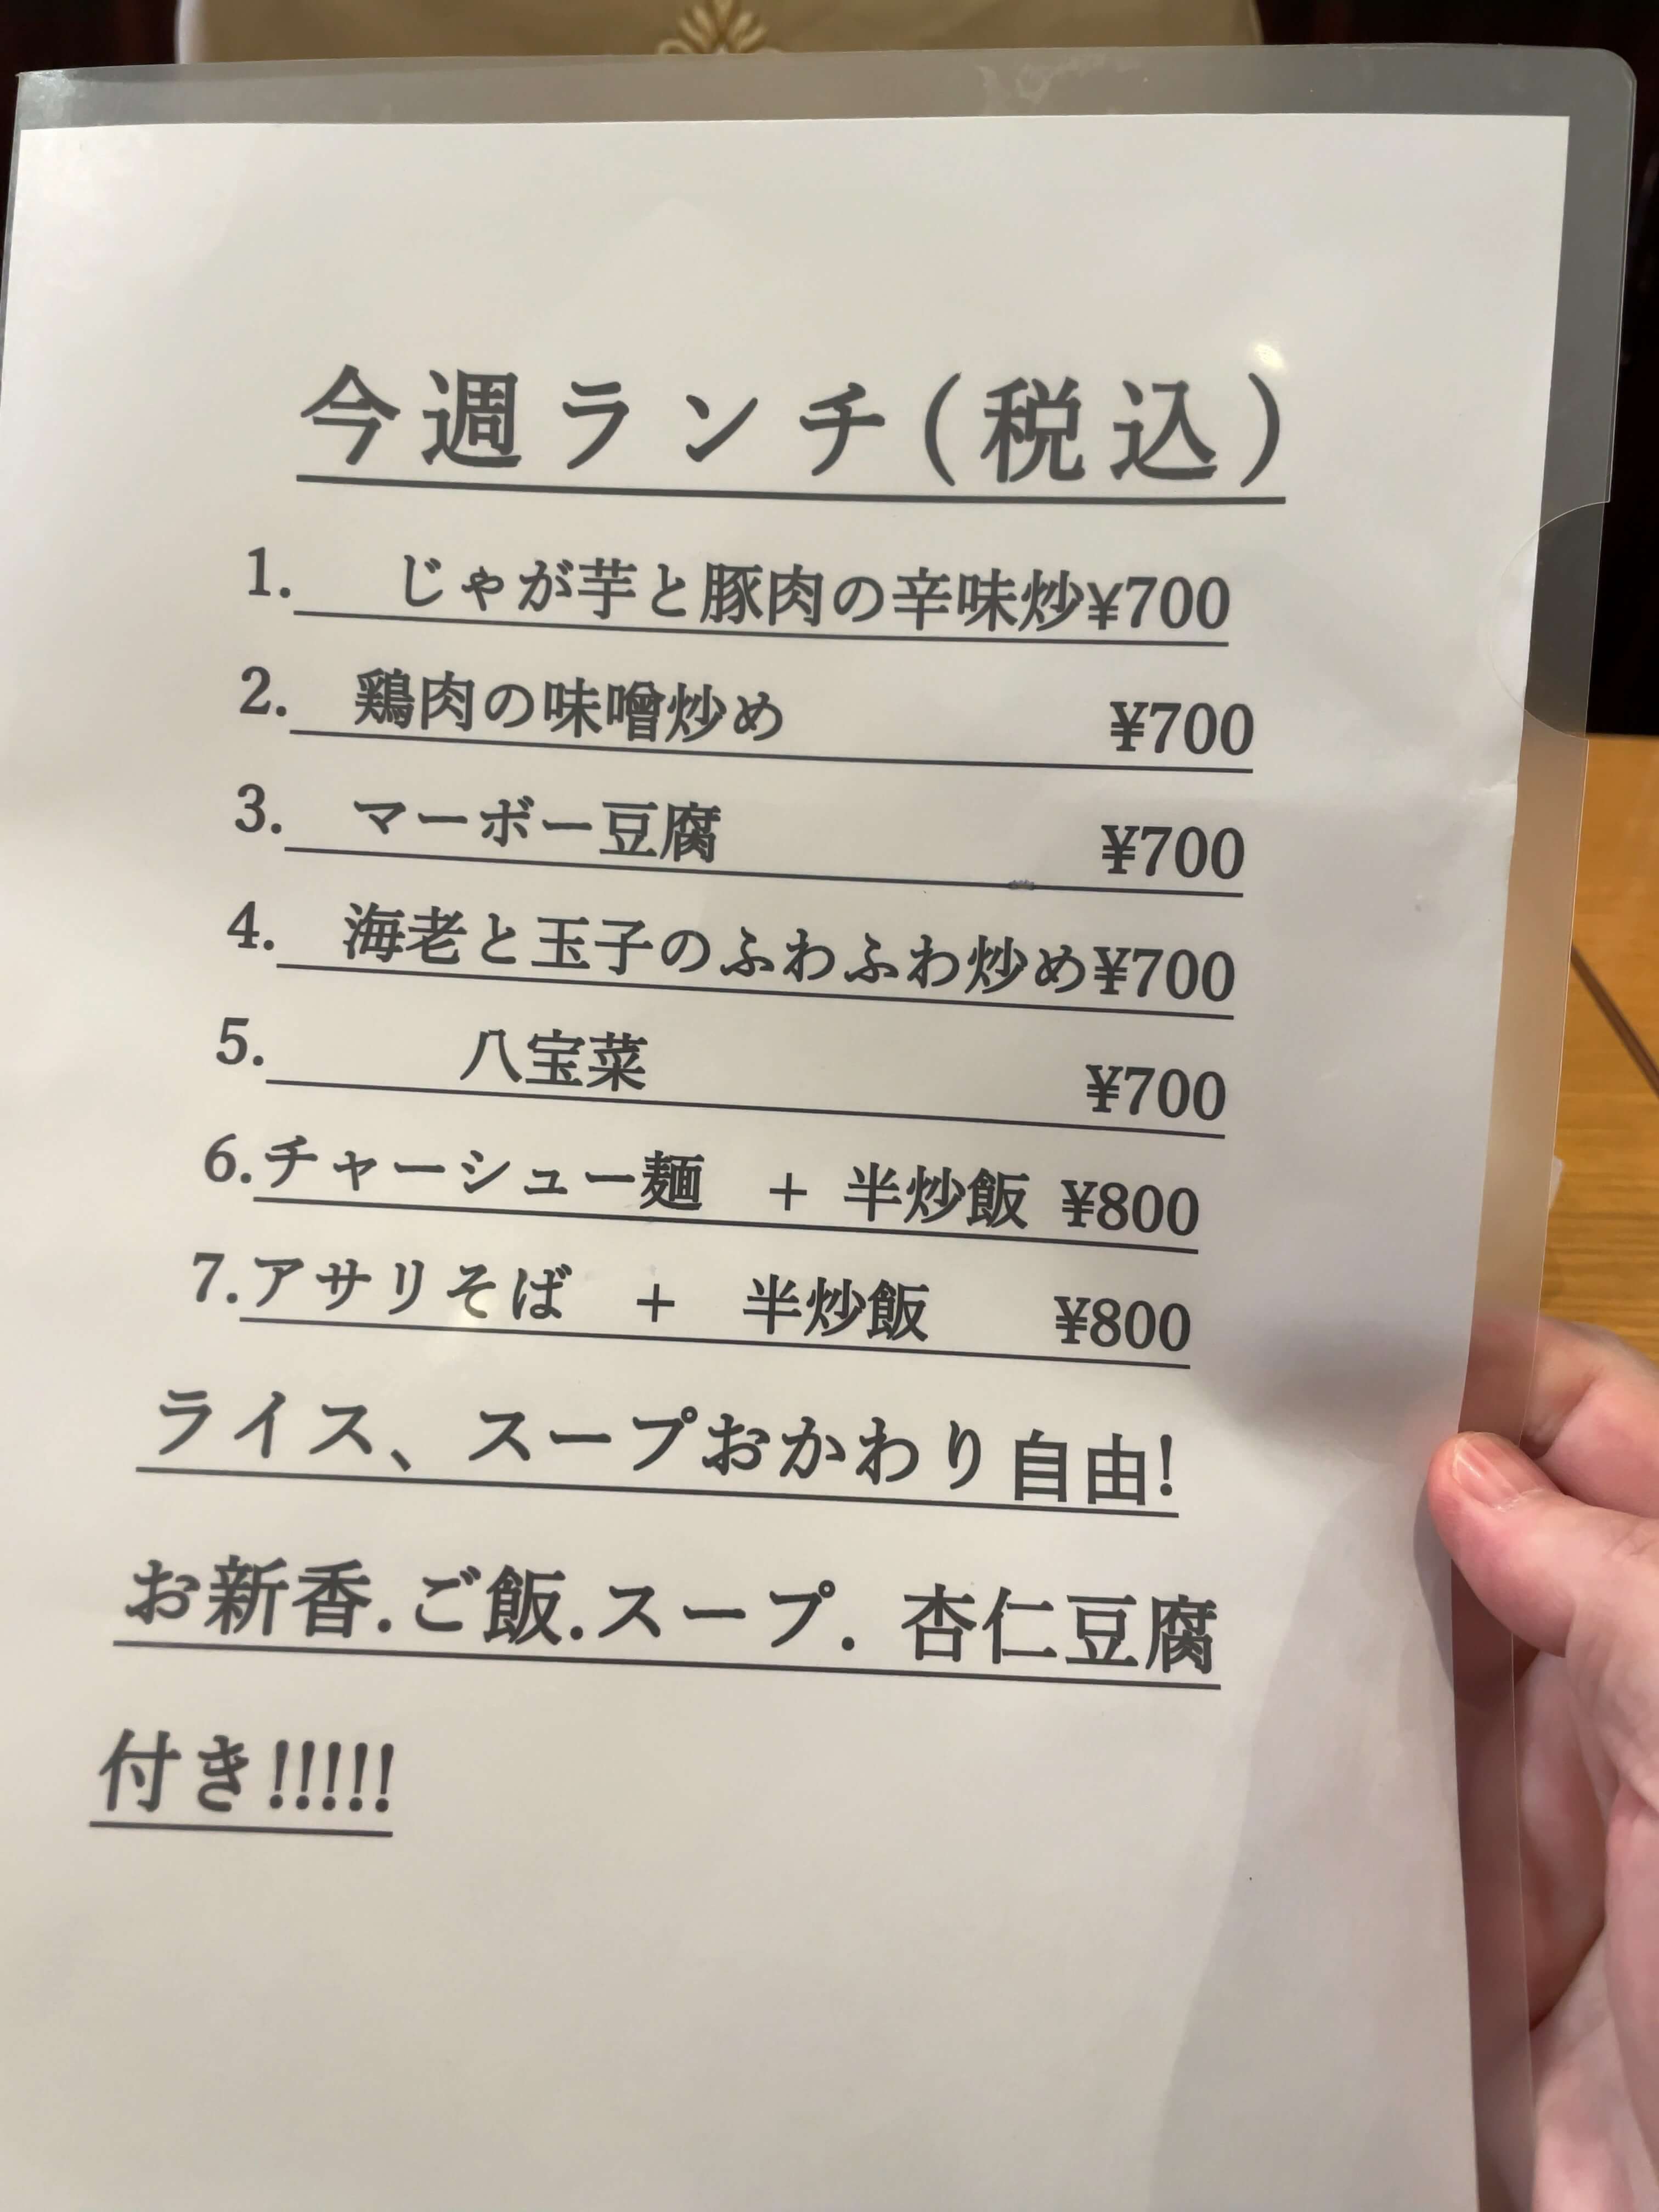 今週ランチ(税込)
1. じゃが芋と豚肉の辛味炒¥700
2. 鶏肉の味噌炒め ¥700
3. マーボー豆腐 ¥700
4. 海老と玉子のふわふわ炒め¥700
5. 八宝菜 ¥700
6.チャーシュー麺 + 半炒飯 ¥800
7.アサリそば + 半炒飯 ¥800
ライス、スープおかわり自由!
お新香.ご飯.スープ. 杏仁豆腐
付き!!!!!